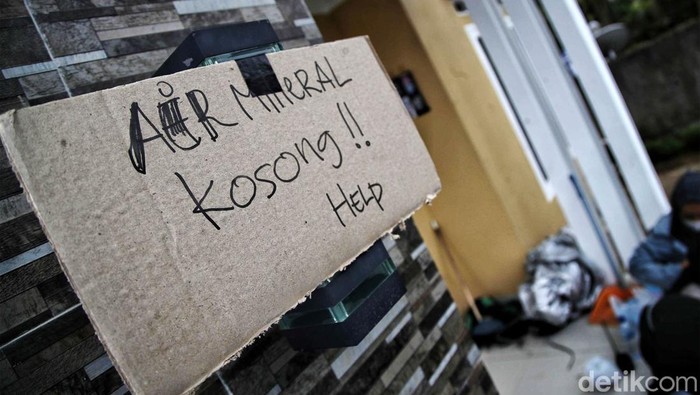 AIR MINERAL
Kosong!!
HELP
detikcom